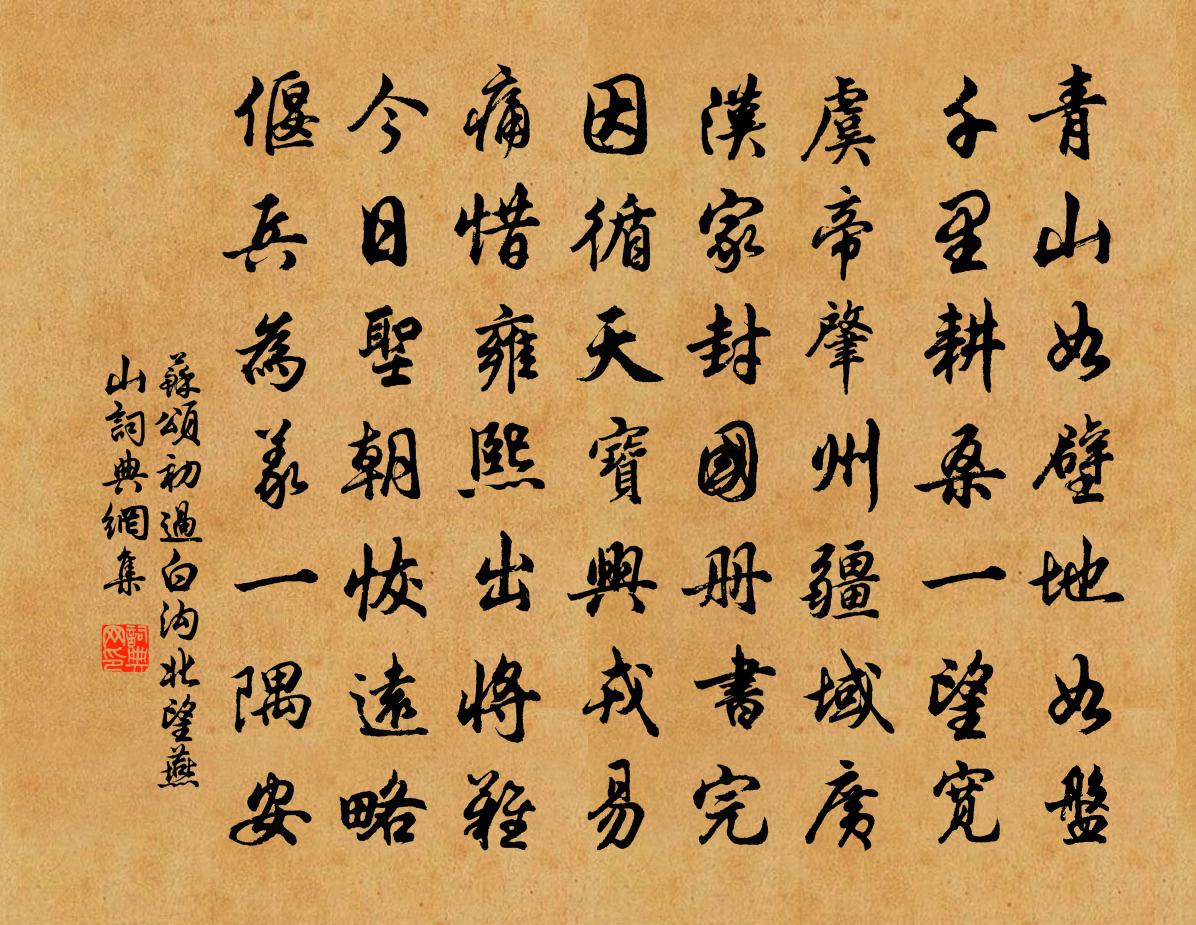 青山如壁地如盤
千里耕桑一望寬
虞帝肇州疆域廣
漢家封國册書完
因循天寶興戎易
痛惜雍熙出將難
今日聖朝恢遠略
偃兵為義一隅安
蘇頌初過白沟北望燕
山詞典網集
詞典网印